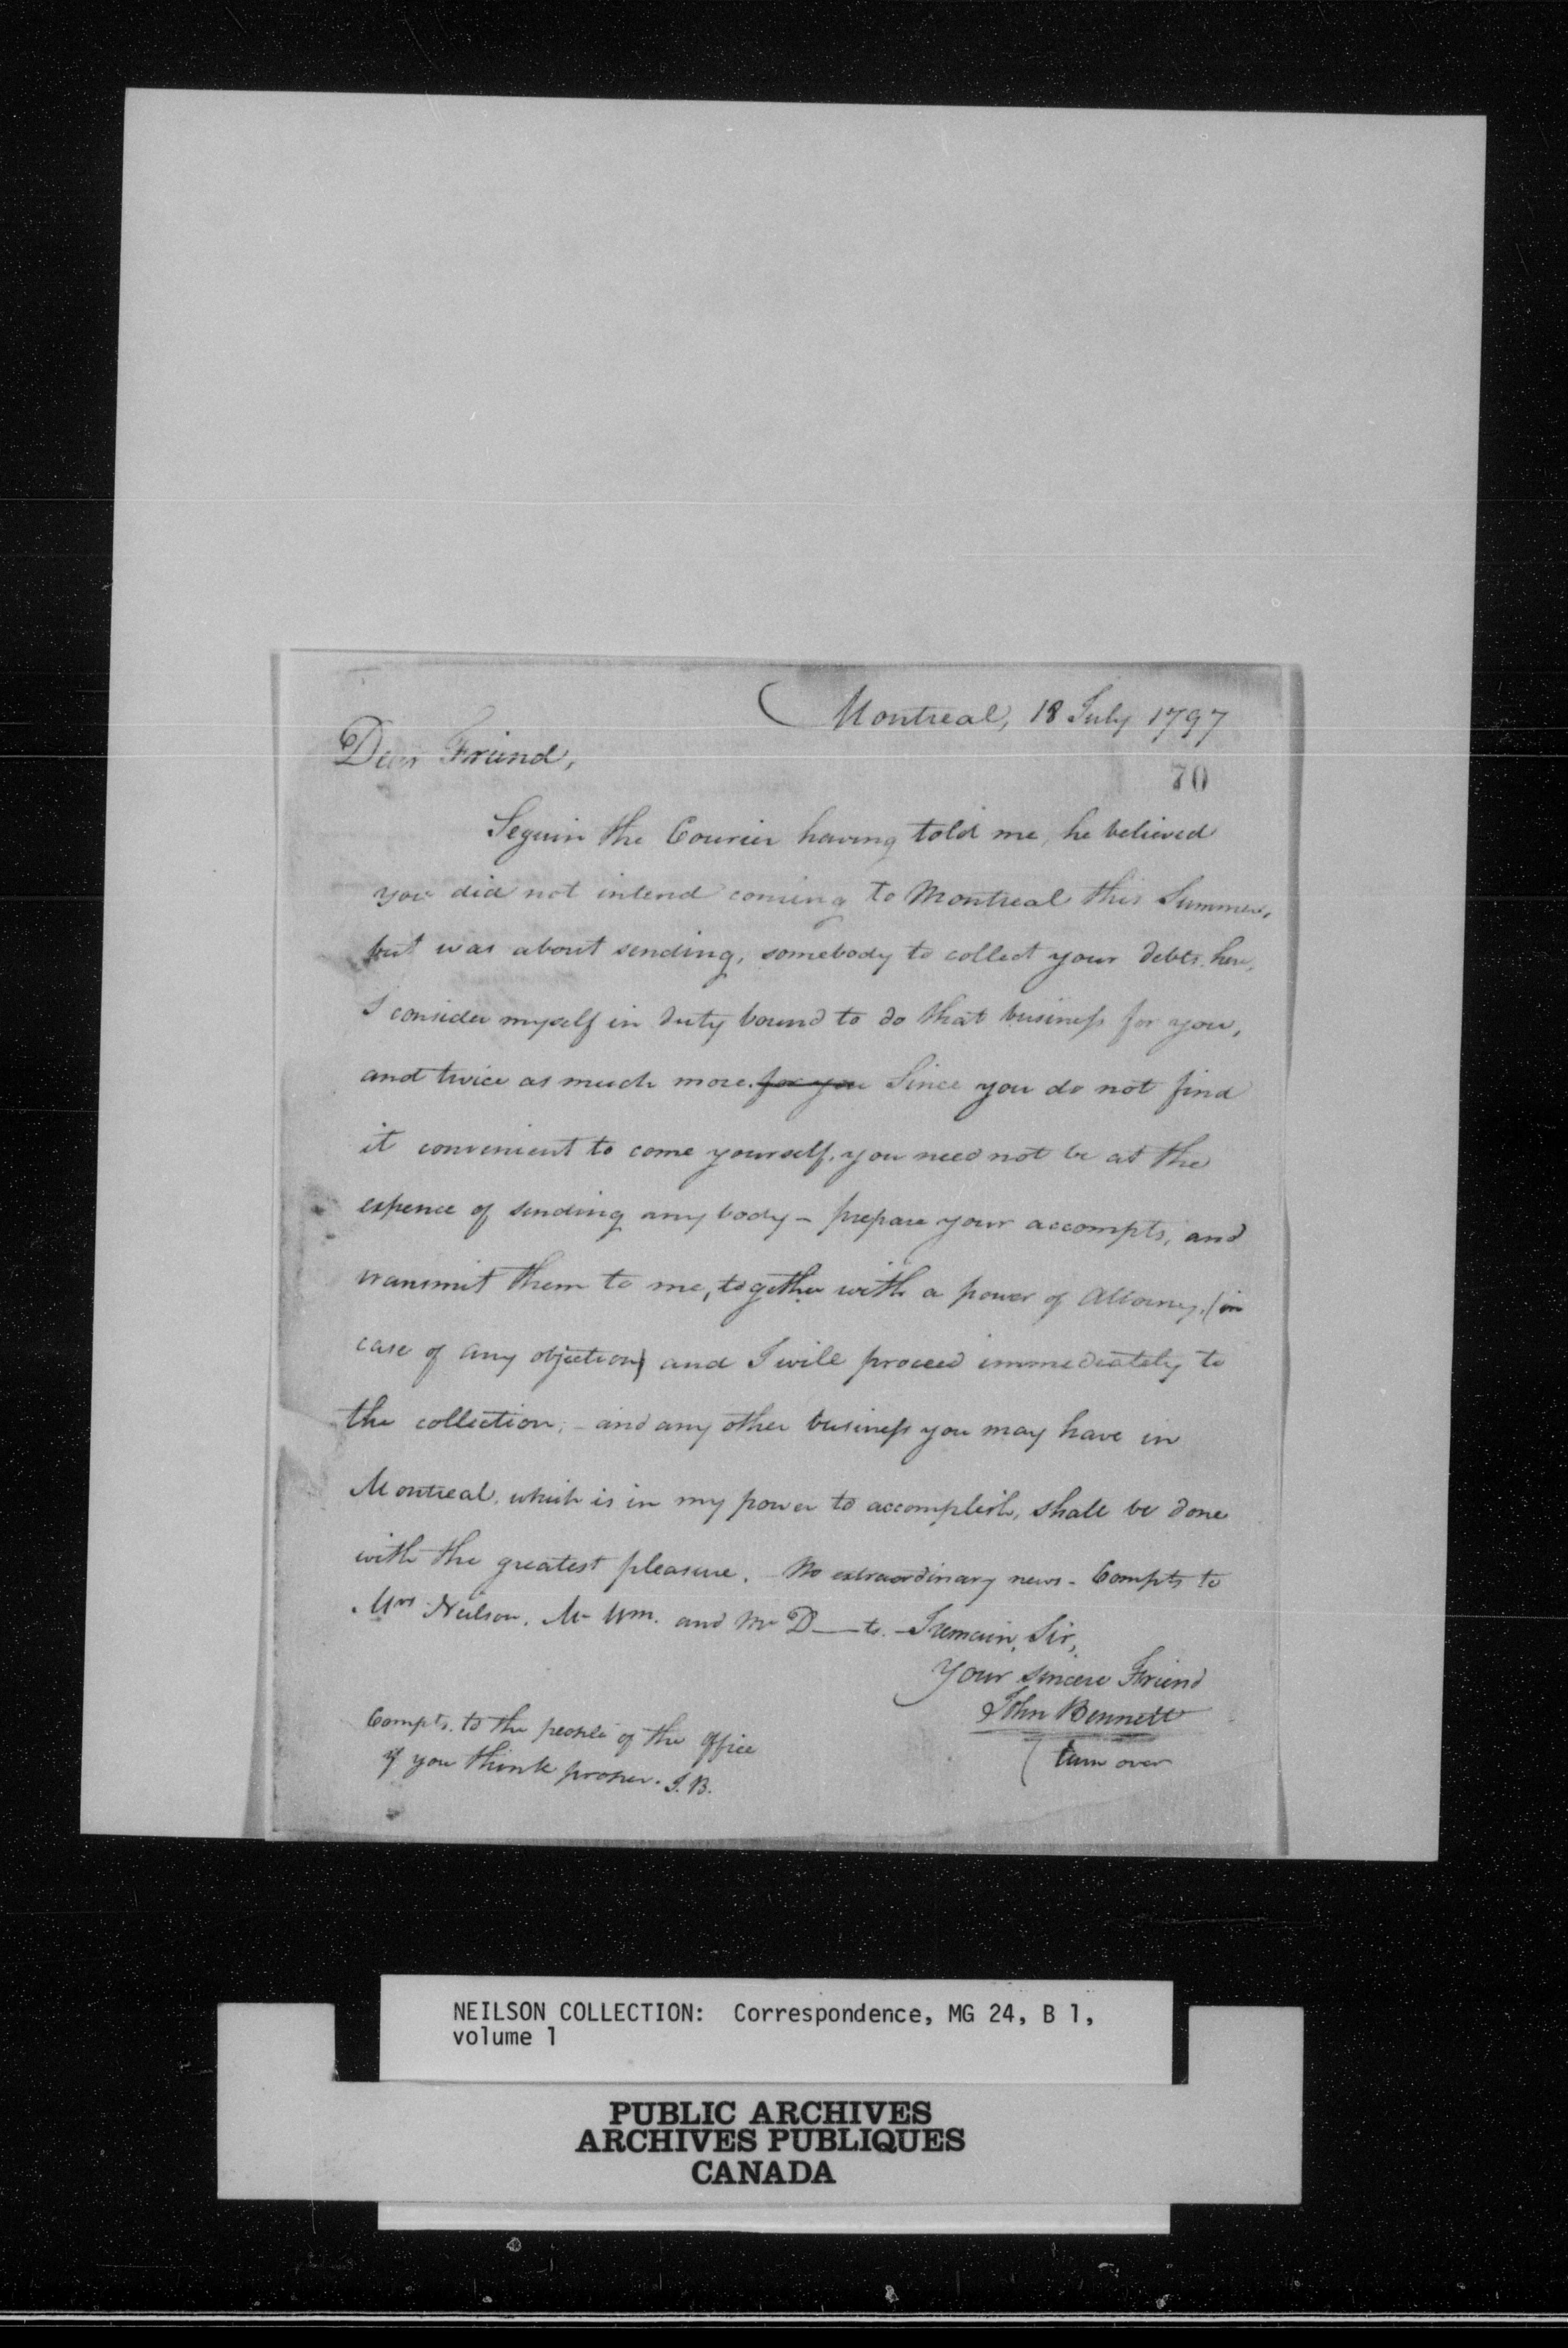 Montreal, 18 July 1797
Dear Friend,
70
Seguin the Courier having told me, he believed
you did not intend coming to Montreal this Summer,
but was about sending, somebody to collect your debts here,
I consider myself in duty bound to do that business for you,
and twice as much more. for you Since you do not find
it convenient to come yourself, you need not be at the
expence of sending any body - prepare your accompts, and
transmit them to me, together with a power of Attorney, (in
case of any objection) and I will proceed immediately to
the collection; - and any other business you may have in
Montreal, which is in my power to accomplish, shall be done
with the greatest pleasure. - No extraordinary news - Compts to
Mrs Neilson, Mr Wm. and Mr D——ts. - I remain, Sir,
Your sincere Friend
John Bennett
(turn over
Compts. to the people of the Office
if you think proper. J.B.
NEILSON COLLECTION: Correspondence, MG 24, B 1,
volume 1
PUBLIC ARCHIVES
ARCHIVES PUBLIQUES
CANADA